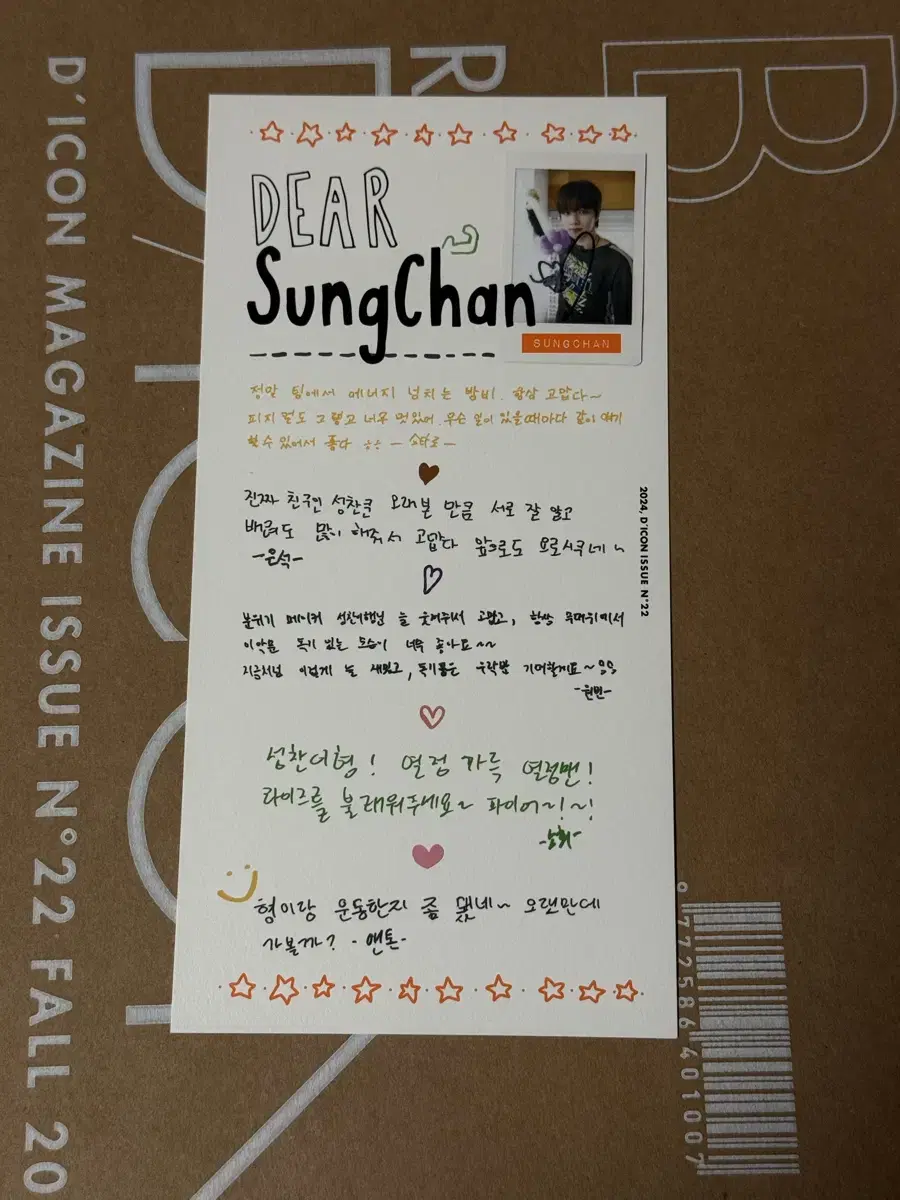 D'ICON MAGAZINE ISSUE N°22 FALL 20
D'ICON
R
B
DEAR
SungChan
SUNGCHAN
정말 팀에서 에너지 넘치는 밤비. 항상 고맙다~
피지컬도 그렇고 너무 멋있어. 무슨 일이 있을때마다 같이 얘기
할 수 있어서 좋다 ㅎㅎ - 쇼타로 -
진짜 친구인 성찬쿤 오래본 만큼 서로 잘 알고
배려도 많이 해줘서 고맙다 앞으로도 요로시쿠네~
-은석-
분위기 메이커 성찬이형님 늘 웃겨주셔서 고맙고, 항상 무대위에서
이 악문 독기 있는 모습이 너무 좋아요~~
지금처럼 이렇게 늘 새기고, 독기품은 기억할게요~
-원빈-
성찬이형! 열정 가득 열정맨!
라이즈를 불태워주세요~ 파이어~!~!
-소희-
형이랑 운동한지 좀 됐네~ 오랜만에
가볼까? -앤톤-
2024, D'ICON ISSUE N°22
9 772586 401007